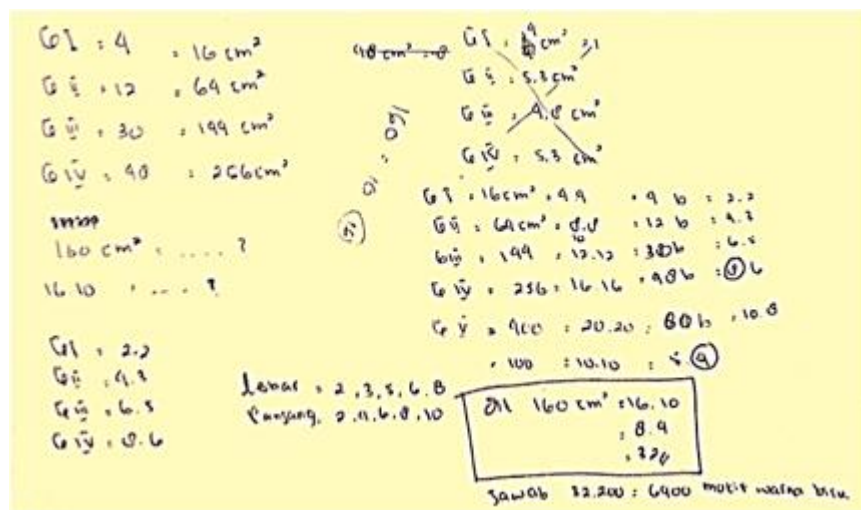 GI : 4 : 16 cm²
G ii : 12 : 64 cm²
G iii : 30 : 144 cm²
G iv : 48 : 256 cm²
160 cm² : .... ?
16 10 : .... ?
GI : 2.2
Gii : 4.3
Giii : 6.5
Giv : 8.6
48 cm² : 8
160 : 10
16
GI : 4 cm²
G ii : 5.3 cm²
G iii : 4.8 cm²
G iv : 5.3 cm²
GI : 16 cm² : 4.4 : 4 b : 2.2
Gii : 64 cm² : 8.8 : 12 b : 4.3
Giii : 144 : 12.12 : 30b : 6.5
G iv : 256 : 16.16 : 48b : 8 6
G v : 400 : 20.20 : 80b : 10.8
: 100 : 10.10 : 5.4
Lebar : 2, 3, 5, 6, 8
Panjang, 2, 4, 6, 8, 10
160 cm² : 16.10
: 8.4
: 32
Jawab 32.200 : 6400 motif warna biru